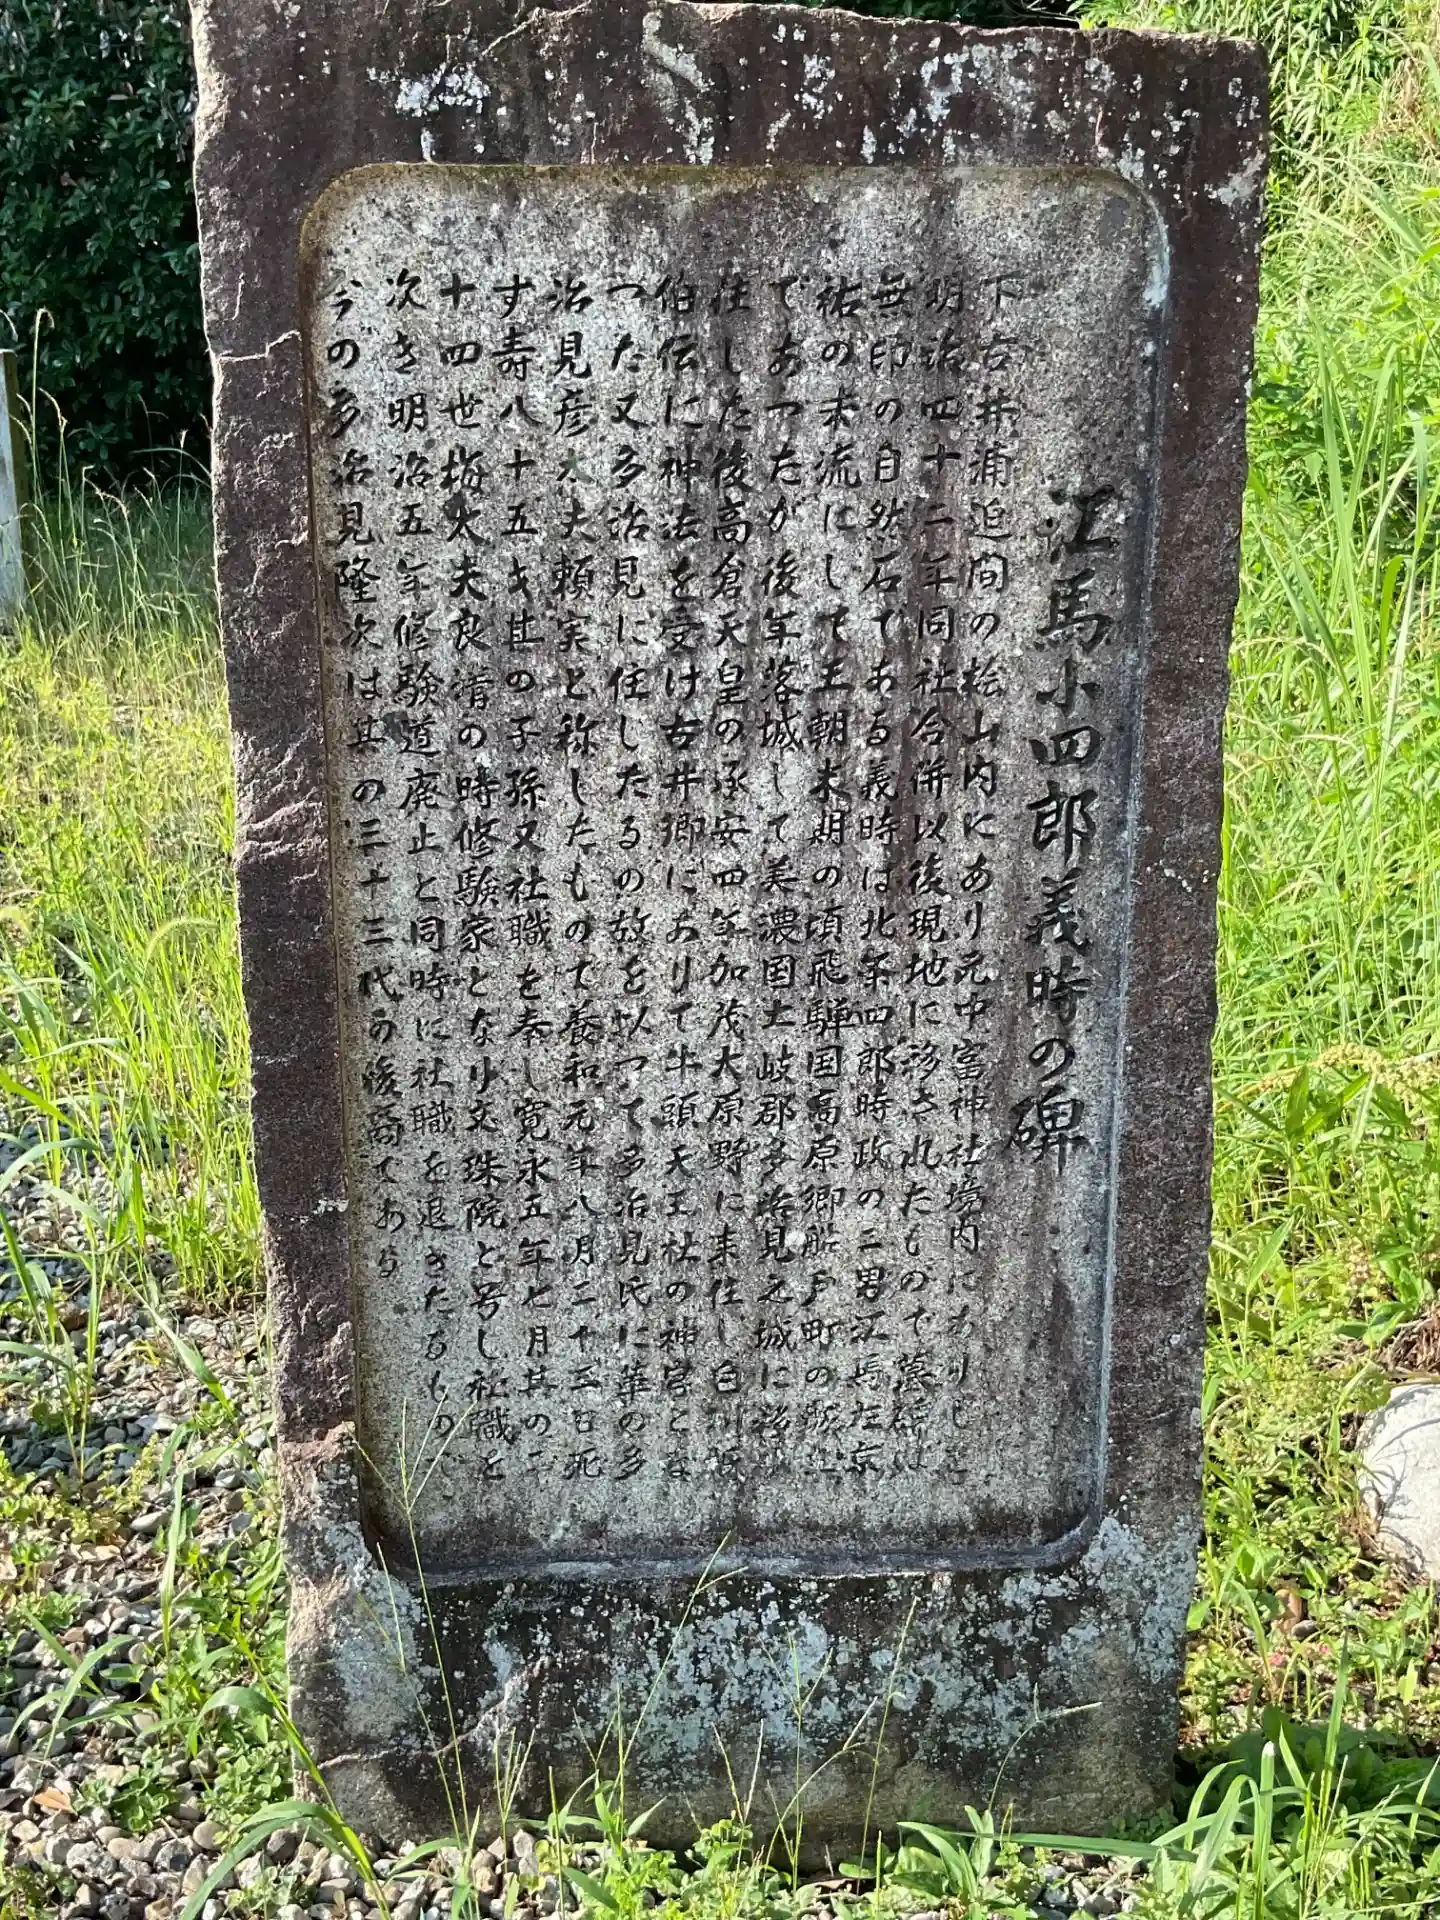 江馬小四郎義時の碑
下古井浦迫間の桧山内にあり元中富神社境内にありしを
明治四十二年同社合併以後現地に移されたもので墓碑は
無印の自然石である義時は北条四郎時政の二男江馬左京
祐の末流にして王朝末期の頃飛騨国高原郷船戸町の城主
であつたが後年落城して美濃国土岐郡多治見之城に移
住した後高倉天皇の承安四年加茂大原野に来住し白川氏
伯伝に神法を受け古井郷にありて牛頭天王社の神官とな
つた又多治見に住したるの故を以つて多治見氏に華の多
治見彦太夫頼実と称したもので養和元年八月二十三日死
す寿八十五才其の子孫又社職を奉し寛永五年七月其の二
十四世梅太夫良清の時修験家となり文珠院と号し社職を
次き明治五年修験道廃止と同時に社職を退きたるもので
今の多治見隆次は其の三十三代の後裔である